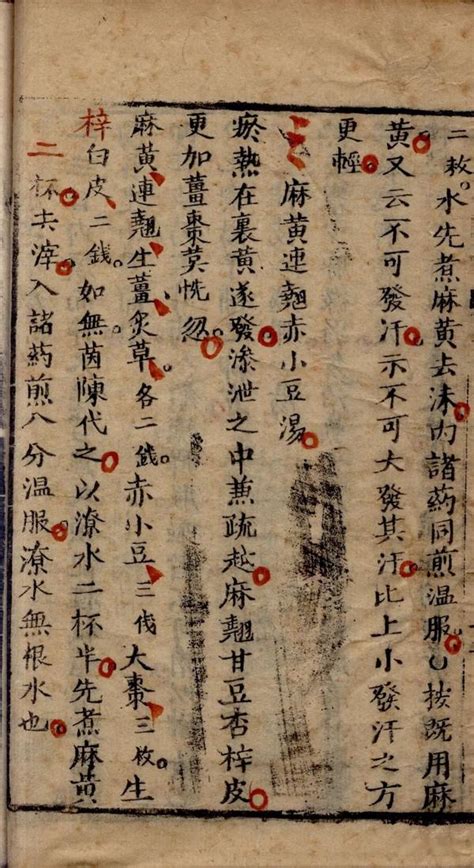 二枚水先煮麻黃去沫内諸药同煎温服〇按既用麻
黃又云不可發汗示不可大發其汗比上小發汗之方
更輕
麻黃連翹赤小豆湯
瘀熱在裏黃遂發滲泄之中蕉疏越麻翹甘豆杏梓皮
更加薑棗莫恍忽
麻黃連翹生薑炙草各二銭赤小豆三伐大棗三枚生
梓白皮二錢如無茵陳代之以潦水二杯半先煮麻黃
二杯去滓入諸药煎八分温服潦水無根水也